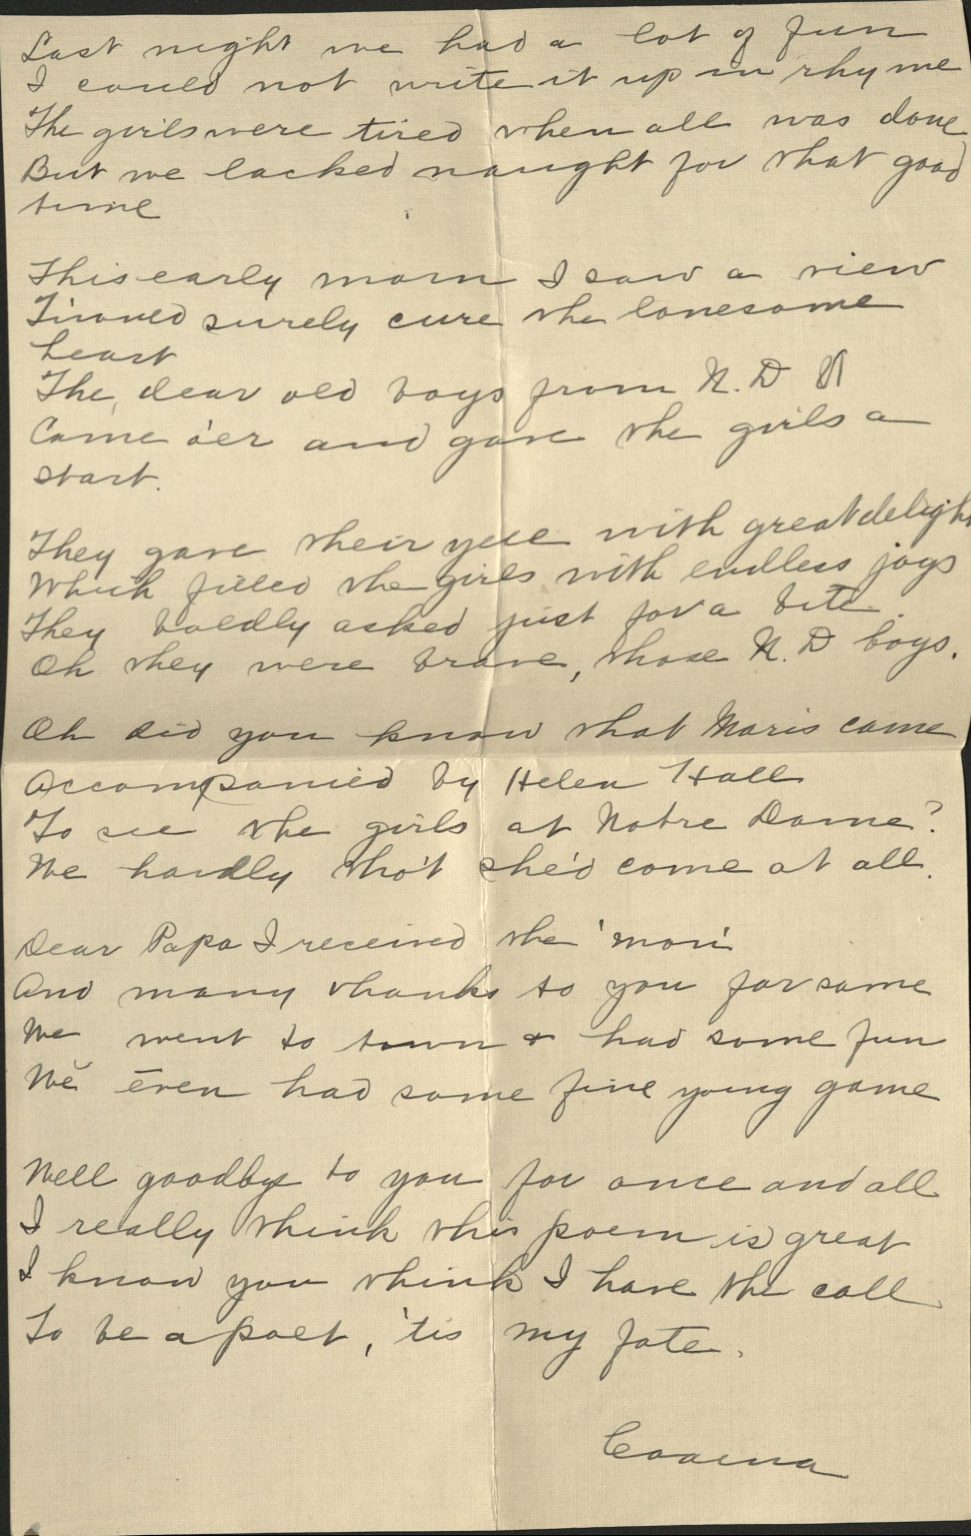 Last night we had a lot of fun
I could not write it up in rhyme
The girls were tired when all was done
But we lacked naught for that good
time
This early morn I saw a view
T'would surely cure the lonesome
heart
The dear old boys from N. D
Came o'er and gave the girls a
start.
They gave their yell with great delight
Which filled the girls with endless joys
They boldly asked just for a bite.
Oh they were brave, those N. D boys.
Oh did you know that Maris came
Accompanied by Helen Hall
To see the girls at Notre Dame?
We hardly tho't she'd come at all.
Dear Papa I received the 'mon'
And many thanks to you for same
We went to town & had some fun
We even had some fine young game
Well goodbye to you for once and all
I really think this poem is great
I know you think I have the call
To be a poet, 'tis my fate.